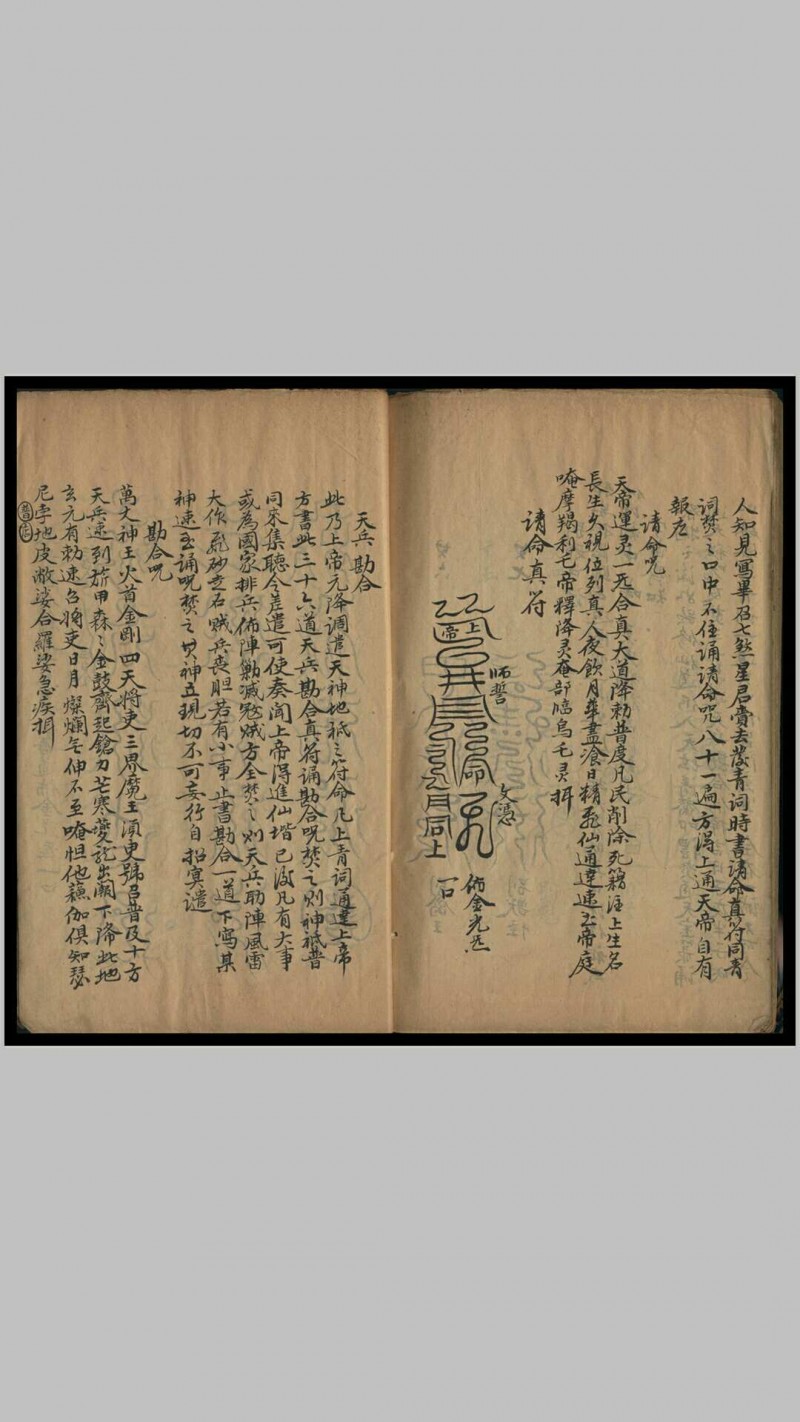 人知見寫畢召七煞星君賫去發青詞時書請命真符同青
詞焚之口中不住誦請命咒八十一遍方得上通天帝自有
報应
請命咒
天帝運灵一炁合真大道降勅普度凡民削除死籍注上生名
長生久視位列真人夜飲月華晝滄日精飛仙通達速至帝庭
唵摩羯利乇帝釋降灵奄部臨烏乇灵揖
請命真符
師誓
文憑
上帝
月同上
佈金光炁
一口
天兵勘合
此乃上帝元降調遣天神地祇之符命凡上青詞通達上帝
方書此三十六道天兵勘合真符誦勘合咒焚之則神祇普
同來集聽令差遣可使奏聞上帝得進仙堦已後凡有大事
或為國家排兵佈陣勦滅
賊方全焚之則天兵助陣風雷
大作飛砂走石賊兵喪胆若有小事止書勘合一道下寫某
神速至誦咒焚之其神立現切不可妄行自招冥譴
勘合咒
萬丈神王火首金剛四天將吏三界魔王須臾號召普及十方
天兵速到旂甲森々金鼓齊起鎗刀芒寒
出闕下降此地
玄元有勅速召將吏日月燦爛
伸不至唵怛他蘓伽俱知瑟
尼李地皮敝娑合羅娑急疾揖